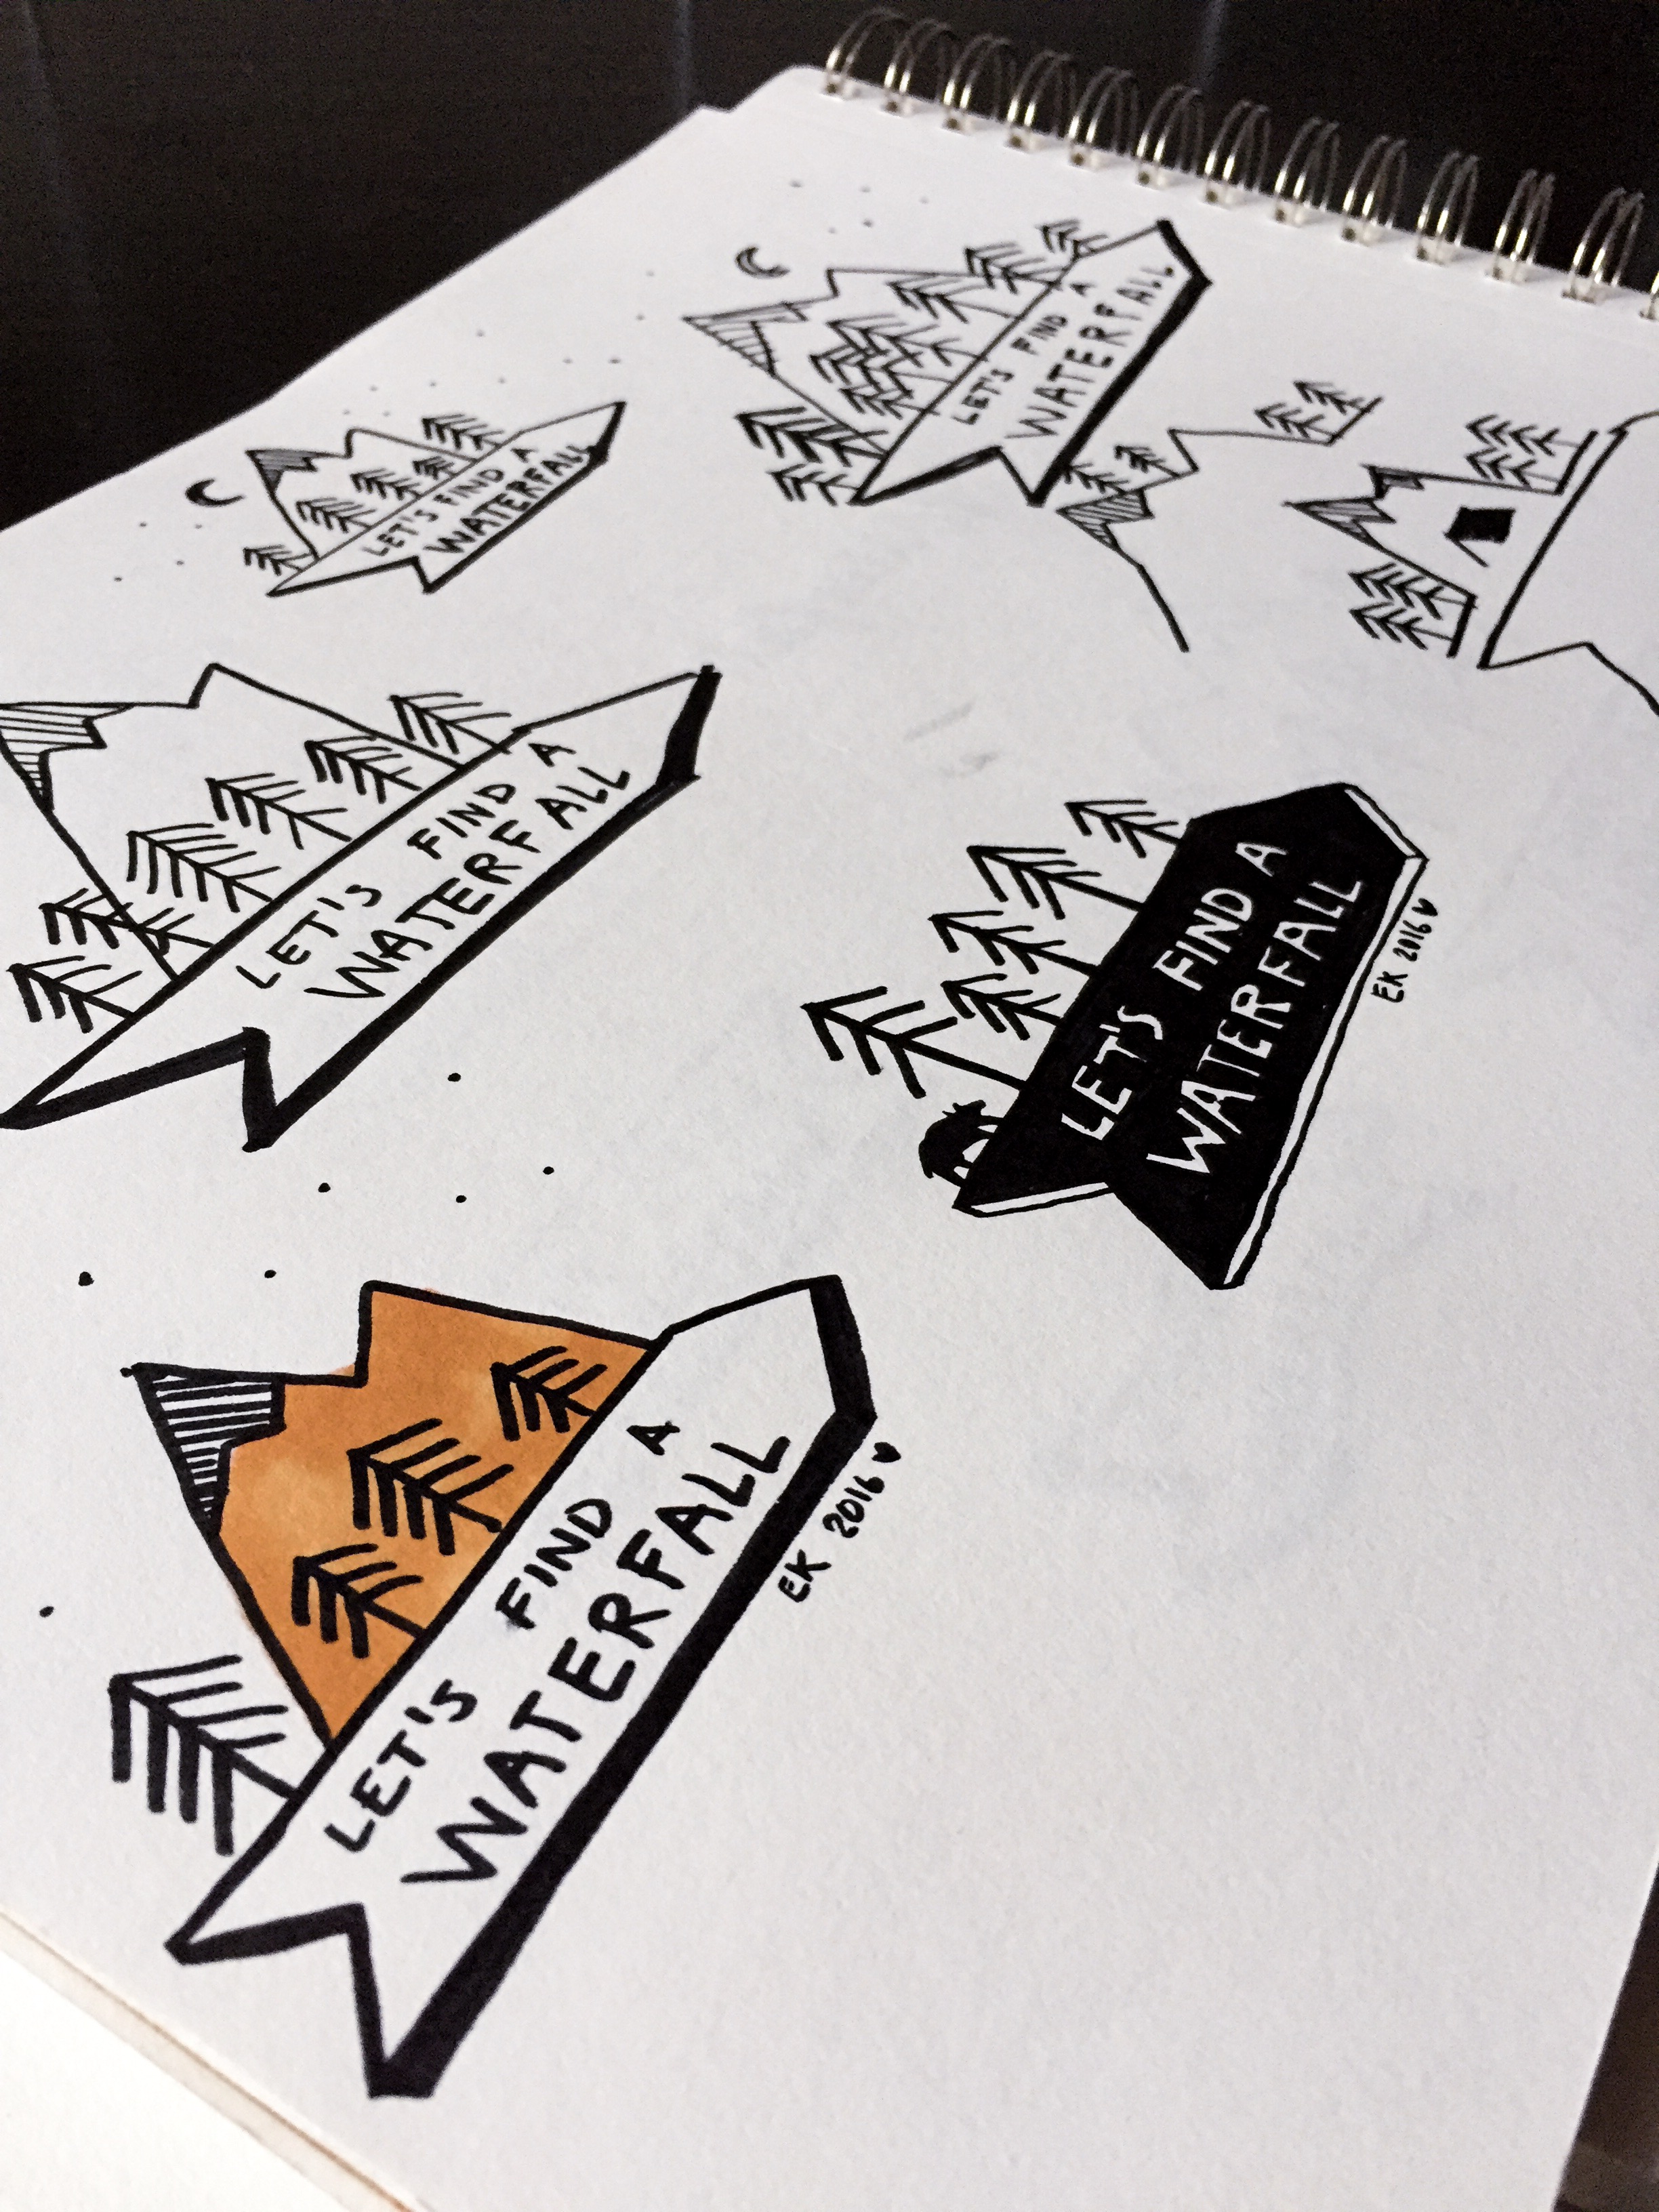 LET'S FIND A
WATERFALL
LET'S FIND A
WATERFALL
LET'S FIND A
WATERFALL
LET'S FIND A
WATERFALL
EK 2016
LET'S FIND A
WATERFALL
EK 2016